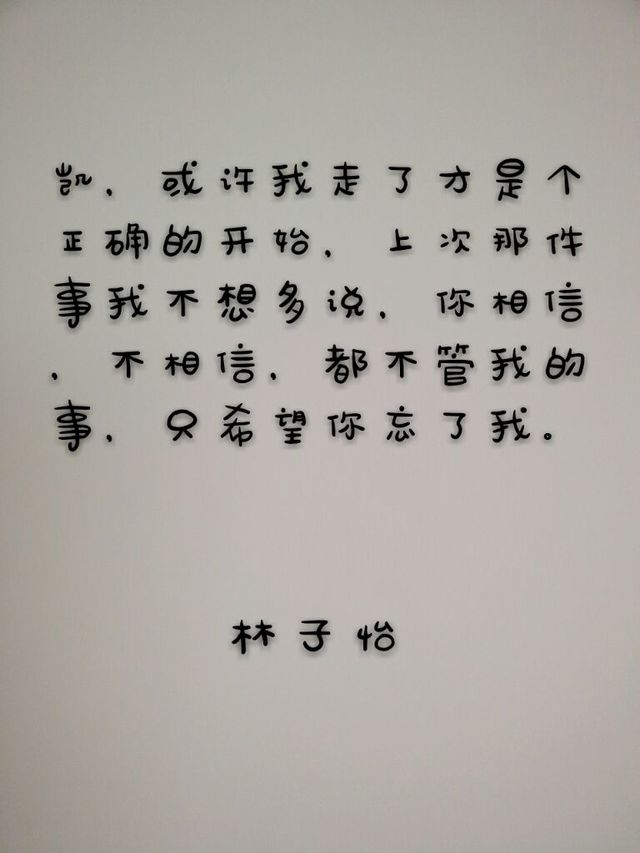 凯，或许我走了才是个
正确的开始，上次那件
事我不想多说，你相信
，不相信，都不管我的
事，只希望你忘了我。
林子怡